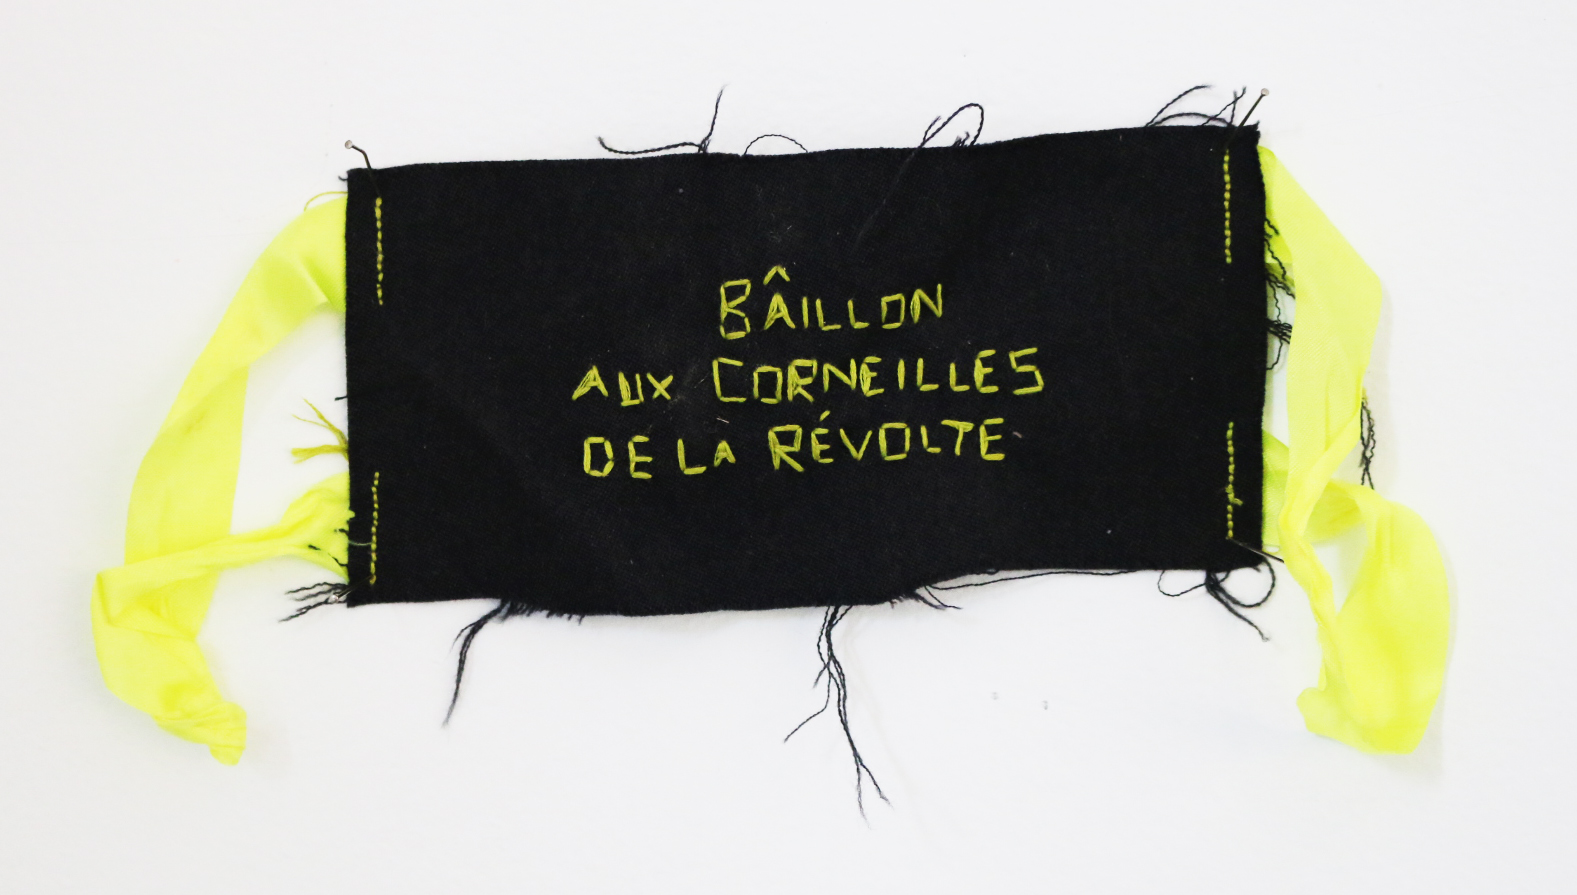 BÂILLON
AUX CORNEILLES
DE LA RÉVOLTE